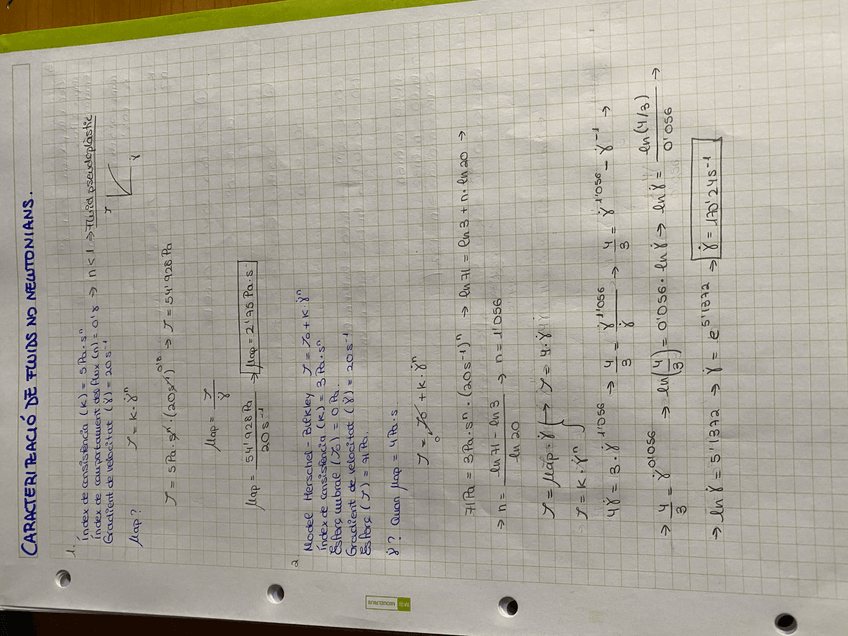 CARACTERITZACIÓ DE FLUIDS NO NEWTONIANS.
1.
Índex de consistència (K) = 5 Pa·sⁿ
Índex de comportament des flux (n) = 0'8 → n < 1 → Fluid pseudoplàstic
Gradient de velocitat (γ̇) = 20 s⁻¹
τ
γ̇
μap?
τ = K · γ̇ⁿ
τ = 5 Pa·sⁿ · (20 s⁻¹)^0'8 → τ = 54'928 Pa
μap = τ / γ̇
μap = 54'928 Pa / 20 s⁻¹ → μap = 2'75 Pa·s
2
Model Herschel-Bulkley τ = τ₀ + K·γ̇ⁿ
Índex de consistència (K) = 3 Pa·sⁿ
Esforç umbral (τ₀) = 0 Pa
Gradient de velocitat (γ̇) = 20 s⁻¹
Esforç (τ) = 71 Pa.
γ̇? Quan μap = 4 Pa·s.
τ = τ₀ + K·γ̇ⁿ
0
71 Pa = 3 Pa·sⁿ · (20 s⁻¹)ⁿ → ln 71 = ln 3 + n · ln 20 →
→ n = (ln 71 - ln 3) / ln 20 → n = 1'056
τ = μap · γ̇ } → τ = 4 · γ̇
τ = K · γ̇ⁿ
4γ̇ = 3 · γ̇^1'056 → 4/3 = γ̇^1'056 / γ̇ → 4/3 = γ̇^1'056 - γ̇⁻¹ →
→ 4/3 = γ̇^0'056 → ln(4/3) = 0'056 · ln γ̇ → ln γ̇ = ln(4/3) / 0'056 →
→ ln γ̇ = 5'1372 → γ̇ = e^5'1372 → γ̇ = 170'24 s⁻¹